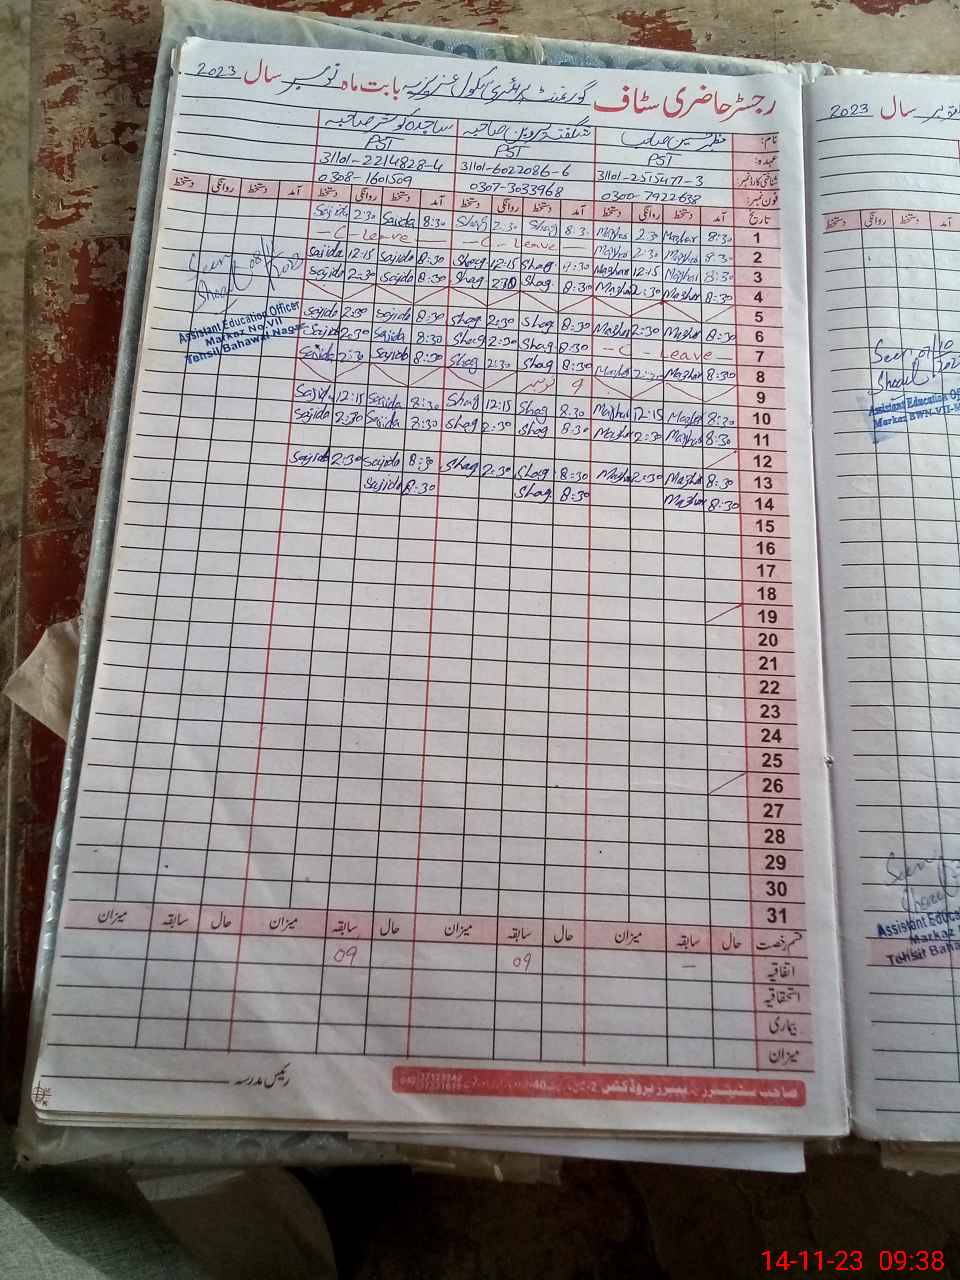 رجسٹر حاضری سٹاف گورنمنٹ پرائمری سکول بابت ماہ نومبر سال 2023
نام: شگفتہ پروین صاحبہ ساجدہ کوثر صاحبہ
عہدہ: PST PST PST
شناختی کارڈ نمبر: 31101-2515477-3 31101-6022086-6 31101-2214828-4
فون نمبر: 0300-7922638 0307-3033968 0308-1601509
تاریخ آمد دستخط روانگی دستخط آمد دستخط روانگی دستخط آمد دستخط روانگی دستخط آمد دستخط روانگی دستخط
1 8:30 Mazhar 2:30 Mazhar 8:30 Shag 2:30 Shag 8:30 Sajida 2:30 Sajida
2 8:30 Mazhar 2:30 Mazhar C - Leave C - Leave
3 8:30 Mazhar 12:15 Mazhar 8:30 Shag 12:15 Shag 8:30 Sajida 12:15 Sajida
4 8:30 Mazhar 2:30 Mazhar 8:30 Shag 2:30 Shag 8:30 Sajida 2:30 Sajida
5
6 8:30 Mazhar 2:30 Mazhar 8:30 Shag 2:30 Shag 8:30 Sajida 2:30 Sajida
7 C - Leave 8:30 Shag 2:30 Shag 8:30 Sajida 2:30 Sajida
8 8:30 Mazhar 2:30 Mazhar 8:30 Shag 2:30 Shag 8:30 Sajida 2:30 Sajida
9 9 نومبر
10 8:30 Mazhar 12:15 Mazhar 8:30 Shag 12:15 Shag 8:30 Sajida 12:15 Sajida
11 8:30 Mazhar 2:30 Mazhar 8:30 Shag 2:30 Shag 8:30 Sajida 2:30 Sajida
12
13 8:30 Mazhar 2:30 Mazhar 8:30 Shag 2:30 Shag 8:30 Sajida 2:30 Sajida
14 8:30 Mazhar 8:30 Shag 8:30 Sajida
15
16
17
18
19
20
21
22
23
24
25
26
27
28
29
30
31
قسم رخصت حال سابقہ میزان حال سابقہ میزان حال سابقہ میزان حال سابقہ میزان
اتفاقیہ - 09 09
استحقاقیہ
بیماری
میزان
رئیس مدرسہ
Seen
Assistant Education Officer
Markaz No.VII
Tehsil Bahawal Nagar
سال 2023
آمد دستخط روانگی دستخط
Seen
Assistant Education
Markaz BWN-VII
Seen
Assistant Educa
Markaz
Tehsil Baha
14-11-23 09:38